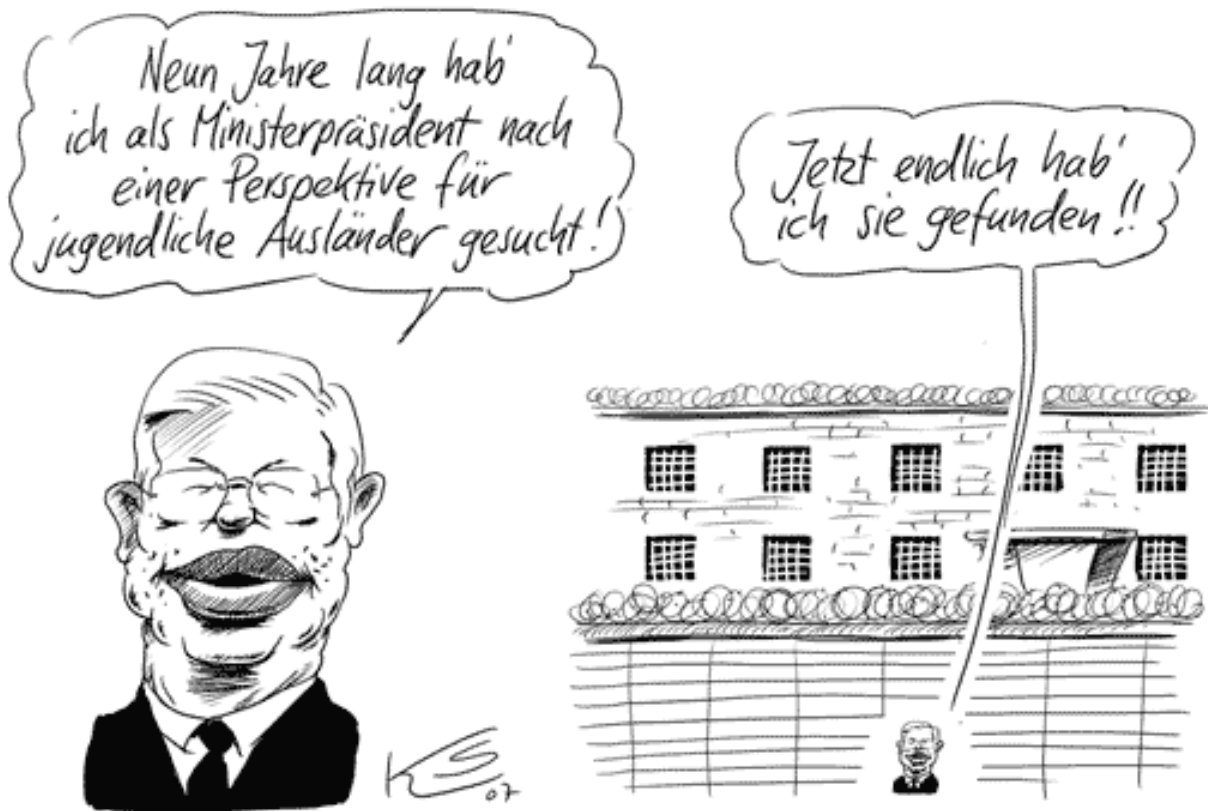 Neun Jahre lang hab'
ich als Ministerpräsident nach
einer Perspektive für
jugendliche Ausländer gesucht!
Jetzt endlich hab'
ich sie gefunden!!
KS
07